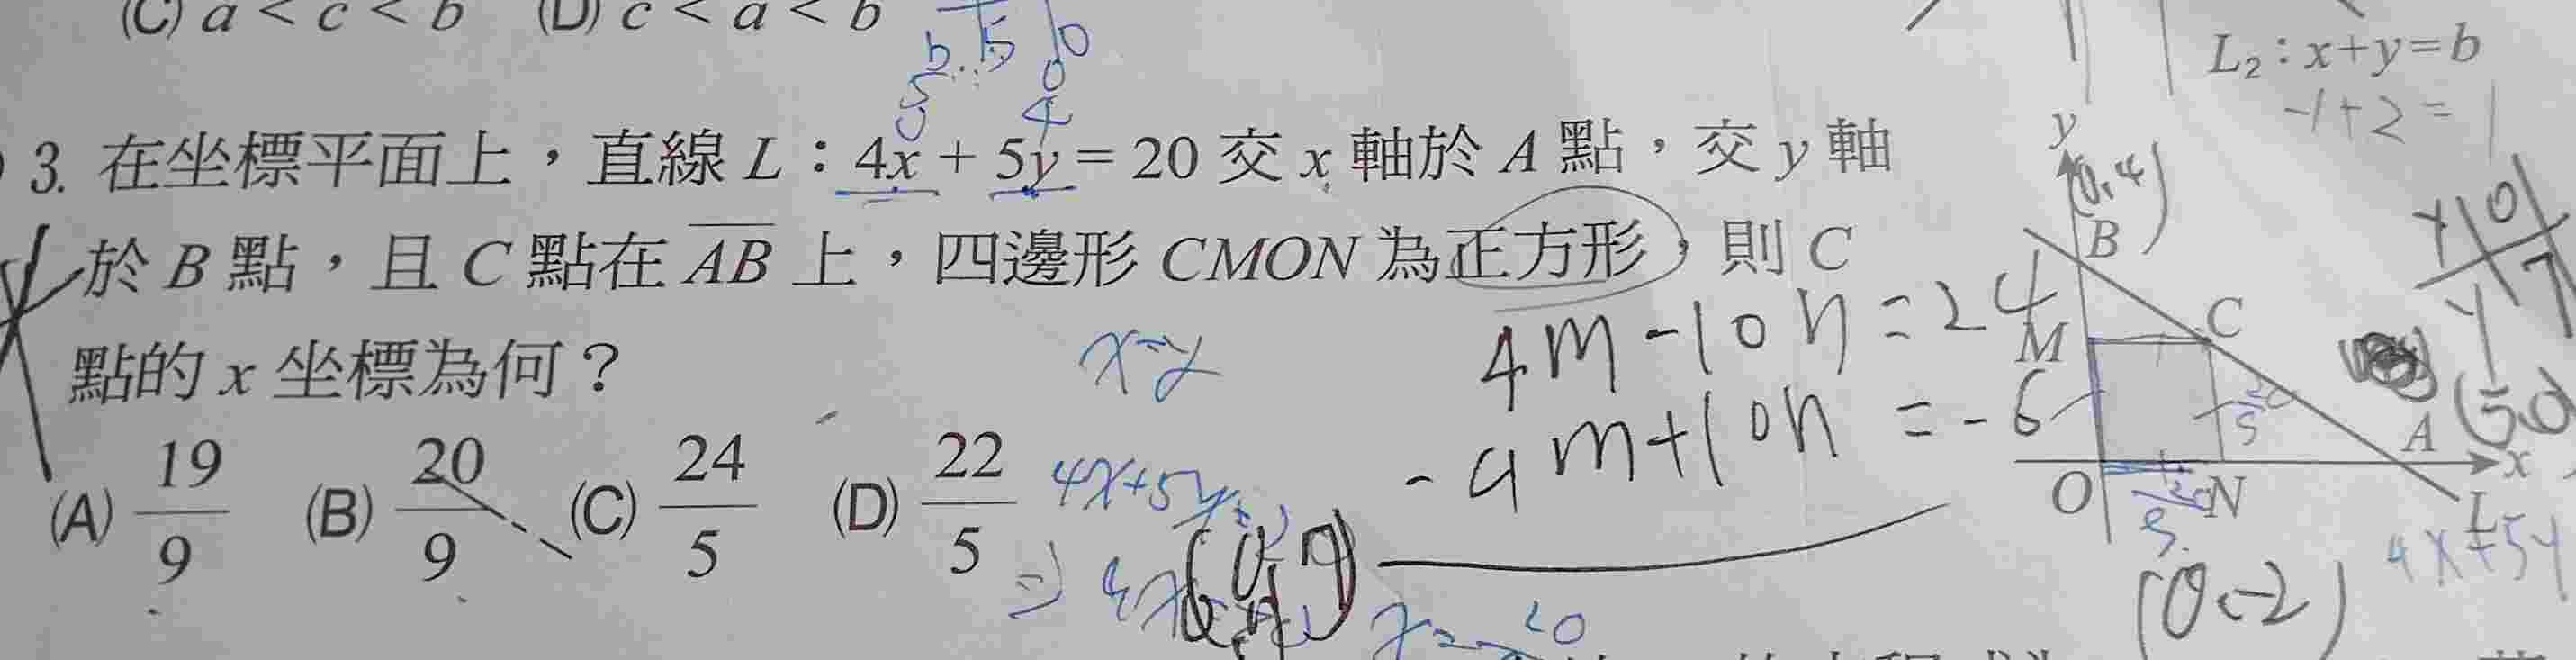 (C) a < c < b (D) c < a < b
L₂：x+y=b
-1+2=1
3. 在坐標平面上，直線 L：4x + 5y = 20 交 x 軸於 A 點，交 y 軸
於 B 點，且 C 點在 AB 上，四邊形 CMON 為正方形，則 C
點的 x 坐標為何？
(A) 19/9 (B) 20/9 (C) 24/5 (D) 22/5
x=y
4x+5y=
4m-10n=24
-9m+10n=-6
y
(0,4)
B
M
C
A
(5,0)
x
O
N
L
4x+5y
(0,-2)